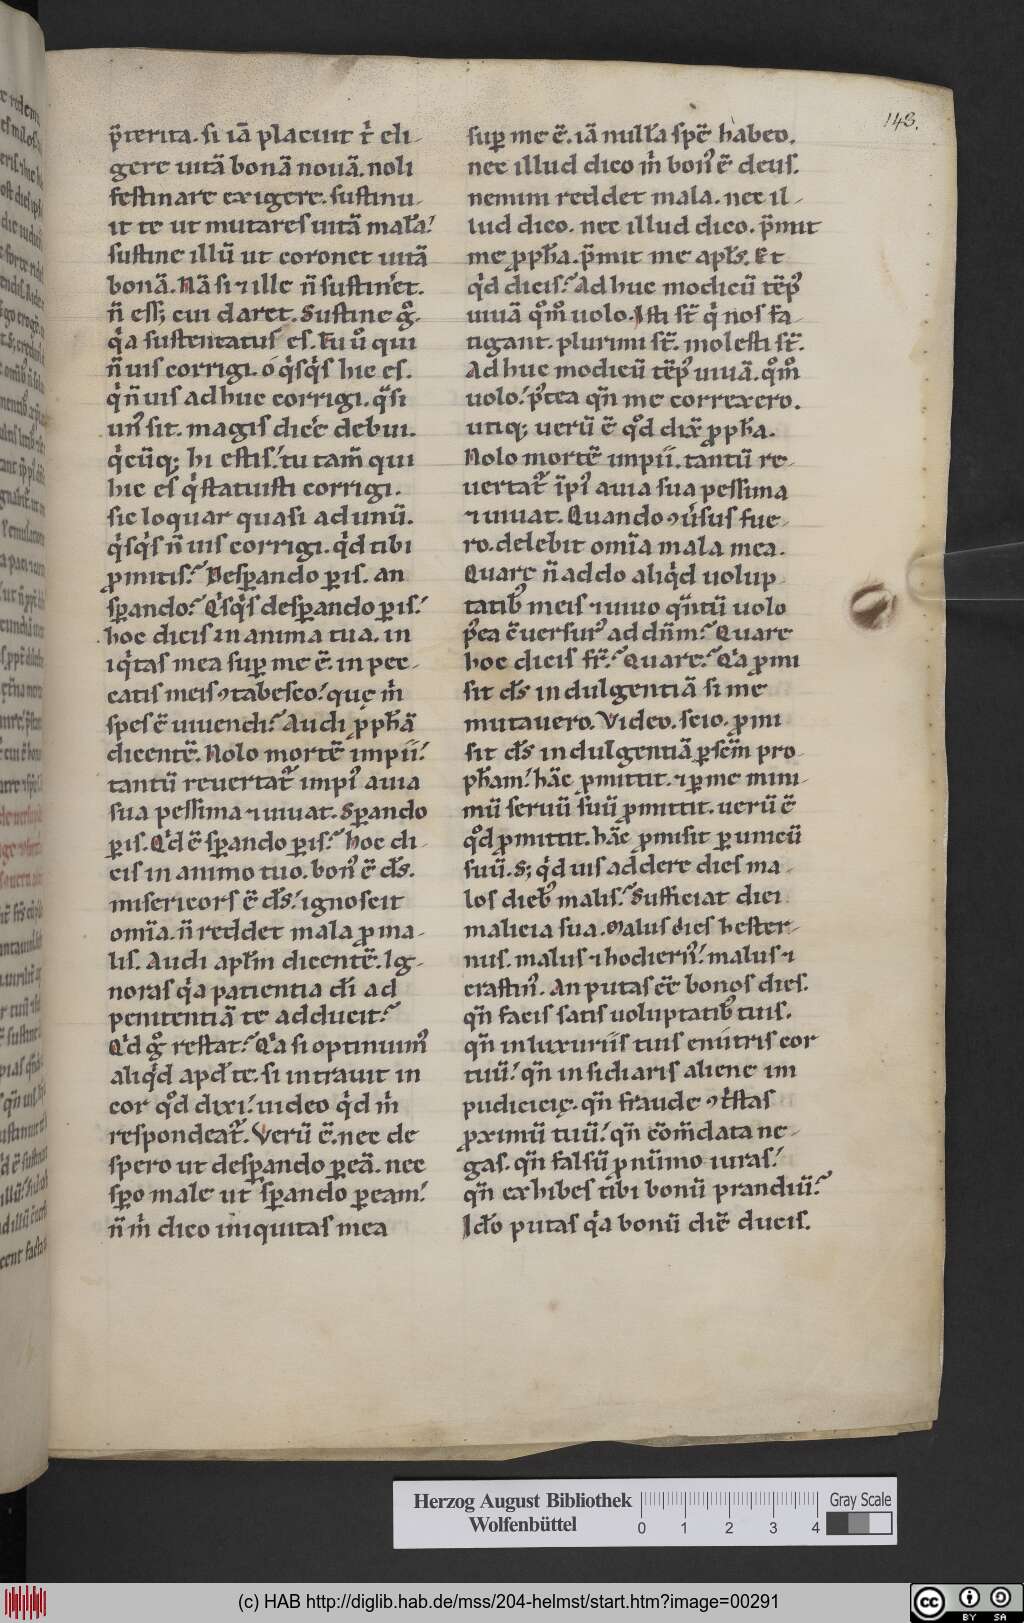 143.
p̄terita. si iā placuit t' eli-
gere uitā bonā nouā. noli
festinare exigere. sustinu-
it te ut mutares uitā malā!
sustine illū ut coronet uitā
bonā. Nā si ⁊ ille n̄ sustin&et.
n̄ ess; cui daret. Sustine gͦ.
qͥa sustentatus es. Tu ū qui
n̄ uis corrigi. ó qͥsqͥs hic es.
qͥ n̄ uis adhuc corrigi. qͣsi
unꝰ sit. magis dic'e debui.
qͥcūq; hi estis! tu tam̄ qui
hic es qͥ statuisti corrigi.
sic loquar quasi ad unū.
qͥsqͥs n̄ uis corrigi. qͥd tibi
ꝓmitis? Desꝑando ꝑis. an
sꝑando? Qͥsqͥs desꝑando ꝑis!
hoc dicis in anima tua. in
iqͥtas mea suꝑ me ē. in pec-
catis meis ꝯtabesco! que m̄
spes ē uiuendi? Audi ꝓph̄ā
dicentē. Nolo mortē impii!
tantū reuertat᷑ impiꝰ a uia
sua pessima ⁊ uiuat. Sꝑando
ꝑis. Qͥd ē sꝑando ꝑis? Hoc di-
cis in animo tuo. bonꝰ ē ds̄.
misericors ē ds̄! ignoscit
om̄ia. n̄ reddet mala ꝓ ma-
lis. Audi apl̄m dicentē. Ig-
noras qͥa patientia di̅ ad
penitentiā te adducit?
Qͥd gͦ restat? Qͥa si optinuimꝰ
aliqͥd apd̄ te. si intrauit in
cor qͦd dixi! uideo qͥd m̄
respondeat᷑. Verū ē. nec de
spero ut desꝑando ꝑeā. nec
sꝑo male ut sꝑando ꝑeam!
n̄ m̄ dico iniquitas mea
suꝑ me ē. iā nullā spē habeo.
nec illud dico m̄ bonꝰ ē deus.
nemini reddet mala. nec il-
lud dico. nec illud dico. p̄mit
me ꝓph̄a. p̄mit me apl̄s. Et
qͥd dicis? Adhuc modicū tēpꝰ
uiuā qͦmͦ uolo. Isti st̄ qͥ nos fa-
tigant. plurimi st̄. molesti st̄.
Adhuc modicū tēpꝰ uiuā. qͦmͦ
uolo! p̄tea qn̄ me correxero.
utiq; uerū ē qͦd dix̄ ꝓph̄a.
Nolo mortē impii. tantū re-
uertat᷑ īpiꝰ a uia sua pessima
⁊ uiuat. Quando ꝯu'sus fue-
ro. delebit om̄ia mala mea.
Quare n̄ addo aliqͥd uolup-
tatibꝰ meis ⁊ uiuo qn̄tū uolo
p̄ea ꝯuersurꝰ ad dn̄m? Quare
hoc dicis fr̄? Quare? Qͥa ꝓmi
sit ds̄ indulgentiā si me
mutauero. Video. scio. ꝓmi
sit ds̄ indulgentiā ꝑ sc̄m pro-
ph̄am! hāc ꝓmittit. ⁊ ꝑ me mini-
mū seruū suū ꝓmittit. uerū ē
qͦd ꝓmittit. hāc ꝓmisit ꝑ unicū
suū. S; qͥd uis addere dies ma-
los diebꝰ malis? Sufficiat diei
malicia sua. Malus dies hester-
nus. malus ⁊ hodiernꝰ! malus ⁊
crastinꝰ. An putas ēē bonos dies.
qn̄ facis satis uoluptatibꝰ tuis.
qn̄ in luxuriis tuis enūtris cor
tuū! qn̄ insidiaris aliene im
pudicicię. qn̄ fraude ꝯt'stas
ꝓximū tuū! qn̄ cōm̄data ne-
gas. qn̄ falsū ꝓ nūmo iuras!
qn̄ exhibes tibi bonū prandiū?
Ido̅ putas qͥa bonū diē ducis.
Herzog August Bibliothek
Wolfenbüttel
0 1 2 3 4
Gray Scale
(c) HAB http://diglib.hab.de/mss/204-helmst/start.htm?image=00291
cc BY SA